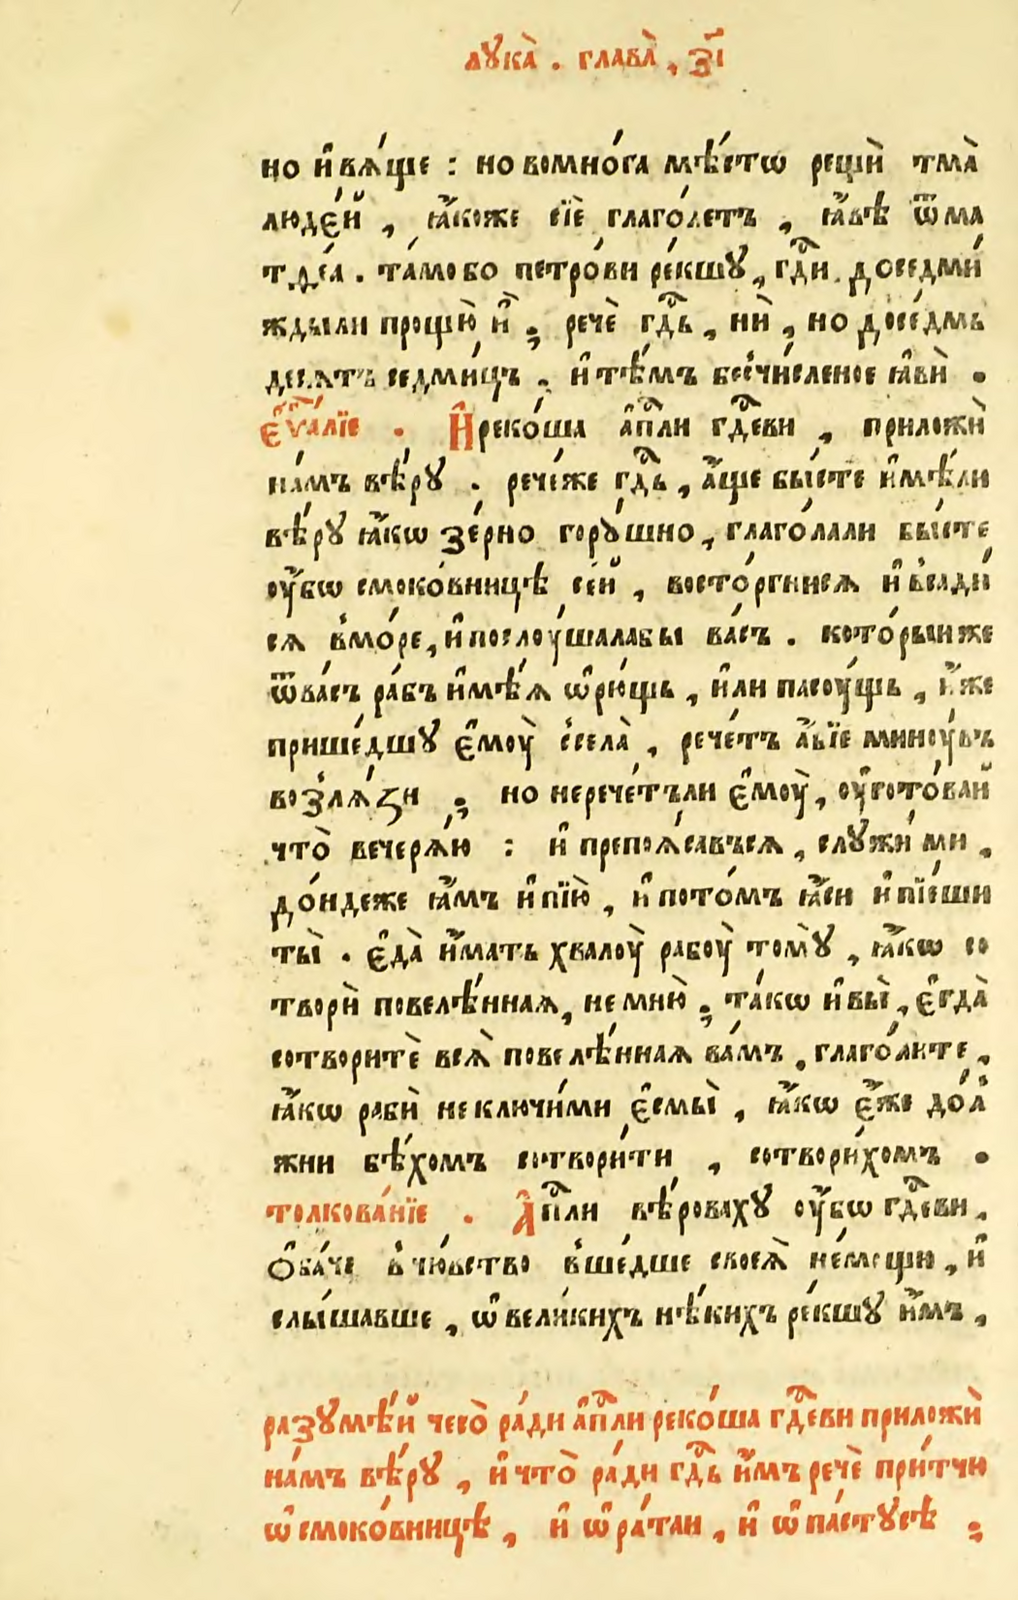 лꙋка̀ . глава̀ , з҃і
но и҆вѧ́ще : но вомно́га мѣ́стѡ рещѝ тма̀
люде́й , ꙗ҆́коже сїѐ глаго́летъ , ꙗ҆́вѣ ѿма
тѳе́а . та́мо бо петро́ви ре́кшꙋ , гдⷭ҇и доседми́
жды ли прощꙋ̀ и҆̀ ; речѐ гдⷭ҇ь , нѝ , но досе́дмь
десѧтъ седми́цъ , и҆ тѣ́мъ бесчи́сленое ꙗ҆вѝ .
є҆ѵⷢ҇а́лїе . И҆ реко́ша а҆пⷭ҇ли гдⷭ҇еви , приложѝ
на́мъ вѣ́рꙋ . рече́же гдⷭ҇ь , а҆́ще бы́сте и҆мѣ́ли
вѣ́рꙋ ꙗ҆́кѡ зе́рно горꙋ́шно , глаго́лали бы́сте
оу҆́бѡ смоко́вницѣ се́й , восто́ргнисѧ и҆ всади́
сѧ вмо́ре , и҆ послоу́шала бы ва́съ . кото́рыи же
ѿва́съ ра́бъ и҆мѣ́ѧ ѡ҆рю́щь , и҆ли пасоу́щь , и҆́же
прише́дшꙋ є҆моу̀ ссела̀ , рече́тъ а҆́бїе миноу́въ
возлѧ́зи ; но нерече́тъ ли є҆моу̀ , оу҆гото́вай
что̀ вечерѧ́ю : и҆ препоѧ́савъсѧ , слꙋжи́ ми ,
до́ндеже ꙗ҆́мъ и҆ пїю̀ , и҆ пото́мъ ꙗ҆́си и҆ пїе́ши
ты̀ . є҆да̀ и҆́мать хвалоу̀ рабоу̀ томꙋ̀ , ꙗ҆́кѡ со
творѝ повелѣ́нная , не мню̀ ; та́кѡ и҆ вы̀ , є҆гда̀
сотворитѐ всѧ̀ повелѣ́нная ва́мъ , глаго́лите ,
ꙗ҆́кѡ рабѝ неключи́ми є҆смы̀ , ꙗ҆́кѡ є҆́же до́л
жни бѣ́хомъ сотвори́ти , сотвори́хомъ .
толкова́нїе . А҆пⷭ҇ли вѣ́ровахꙋ оу҆́бѡ гдⷭ҇еви ,
Ѻба́че в чю́вство вше́дше своеѧ̀ не́мощи , и҆
слы́шавше , ѡ҆ вели́кихъ нѣ́кихъ ре́кшꙋ и҆́мъ ,
разꙋмѣ́й чесо̀ ра́ди а҆пⷭ҇ли реко́ша гдⷭ҇еви приложѝ
на́мъ вѣ́рꙋ , и҆ что̀ ра́ди гдⷭ҇ь и҆́мъ речѐ при́тчи
ѡ҆ смоко́вницѣ , и҆ ѡ҆ ра́таи , и҆ ѡ҆ па́стꙋсѣ ;